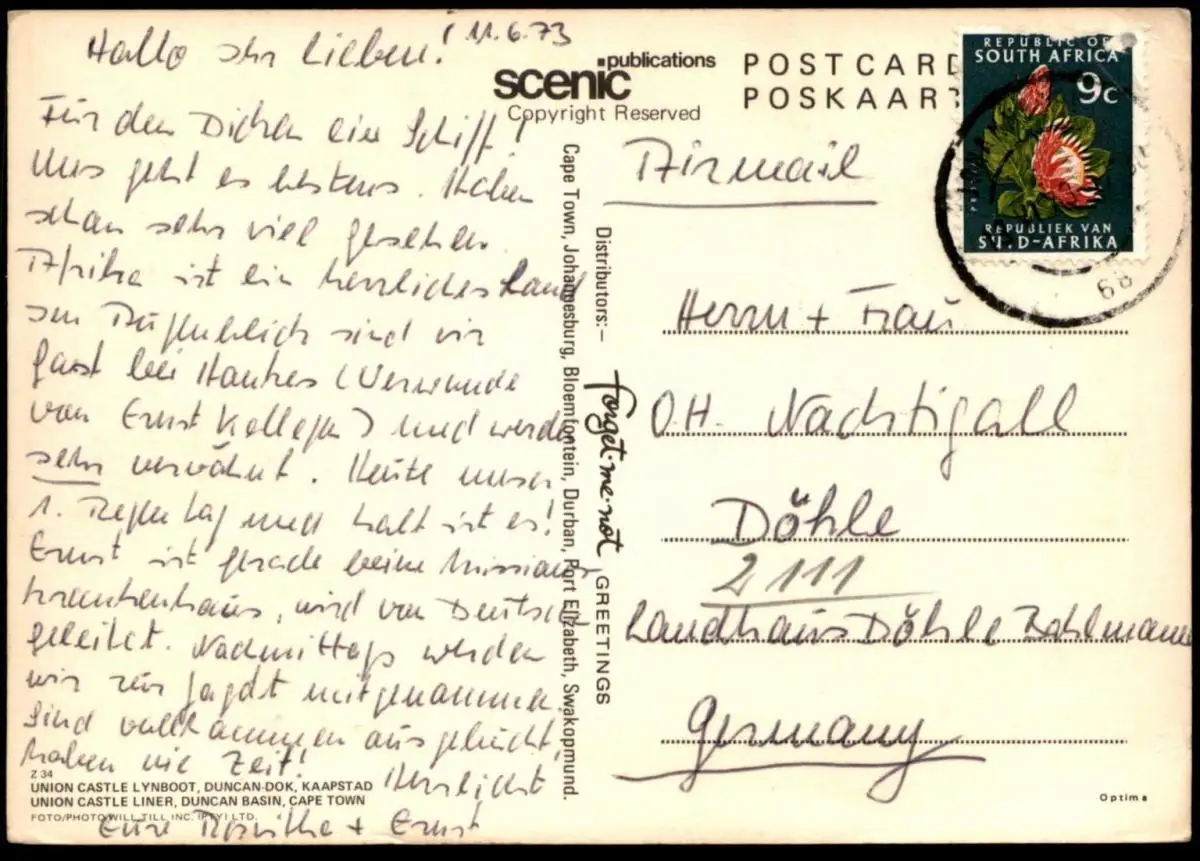 Hallo Ihr Lieben! 11.6.73
Für den Dicken ein Schiff!
Uns geht es bestens. Haben
schon sehr viel gesehen
Afrika ist ein herrliches Land
Im Augenblick sind wir
Gast bei
von Ernst Kollegen) und werden
sehr verwöhnt. Heute unser
1. Regentag und kalt ist es!
Ernst ist gerade beim Missions
krankenhaus, wird von Deutsch
geleitet. Nachmittags werden
wir zur Jagdt mitgenommen.
Sind vollkommen ausgebucht,
haben nie Zeit!
Herzlichst
Eure Roswitha + Ernst
Z 34
UNION CASTLE LYNBOOT, DUNCAN-DOK, KAAPSTAD
UNION CASTLE LINER, DUNCAN BASIN, CAPE TOWN
FOTO/PHOTO WILL TILL INC. (PTY) LTD.
scenic publications
Copyright Reserved
Cape Town, Johannesburg, Bloemfontein, Durban, Port Elizabeth, Swakopmund.
Distributors:– forget-me-not GREETINGS
POSTCARD
POSKAART
REPUBLIC OF
SOUTH AFRICA
9c
REPUBLIEK VAN
SUID-AFRIKA
68
Airmail
Herrn + Frau
O.H. Nachtigall
Döhle
2111
Landhaus Döhle Bahlmann
Germany
Optima